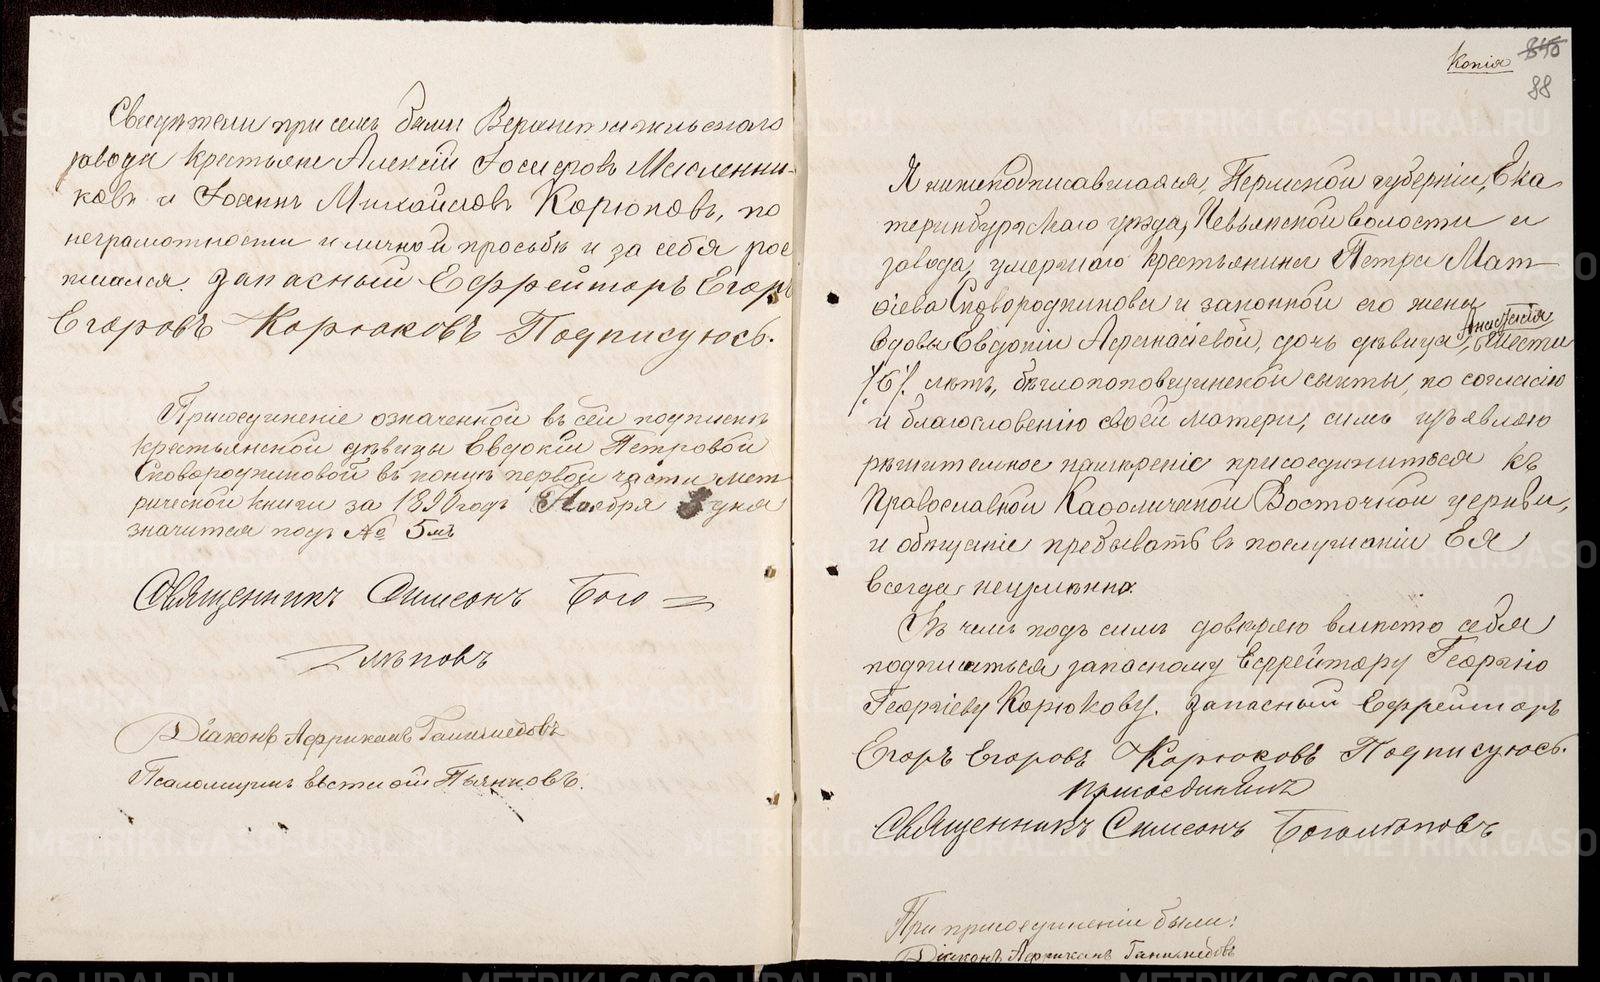 Свидѣтели при семъ были: Верхнетагильскаго
завода крестьяне Алексій Іосифовъ Масленни-
ковъ и Іоснъ Михайловъ Корюковъ, по
неграмотности и личной просьбѣ и за себя рос
писался. Запасный Ефрейторъ Егоръ
Егоровъ Корюковъ Подписуюсь.
Присоединеніе означенной въ сей подпискѣ
крестьянской дѣвицы Евдокіи Петровой
Сковородниковой въ концѣ первой части мет
рической книги за 1890 годъ Ноября дня
значится подъ № 5мъ
Священникъ Симеонъ Бого =
лѣповъ
Діаконъ Африканъ Ганимедовъ
Псаломщикъ Пьянковъ.
Копія 88
Я нижеподписавшаяся, Пермской губерніи, Ека
теринбургскаго уѣзда, Невьянской волости и
завода, умершаго крестьянина Петра Мат-
ѳіева Сковородникова и законной его жены
вдовы Евдокіи Аѳанасіевой, дочь дѣвица, Анастасія шести
/6/ лѣтъ, бѣглопоповщинской секты, по согласію
и благословенію своей матери, симъ изъявляю
рѣшительное намѣреніе присоединиться къ
Православной Каѳолической Восточной церкви,
и обѣщаніе пребывать въ послушаніи Ея
всегда неизмѣнно.
Въ чемъ подъ симъ довѣряю вмѣсто себя
подписаться запасному Ефрейтору Георгію
Георгіеву Корюкову. Запасный Ефрейторъ
Егоръ Егоровъ Корюковъ Подписуюсь.
Присоединилъ
Священникъ Симеонъ Боголѣповъ
При присоединеніи были:
Діаконъ Африканъ Ганимедовъ
METRIKI.GASO-URAL.RU